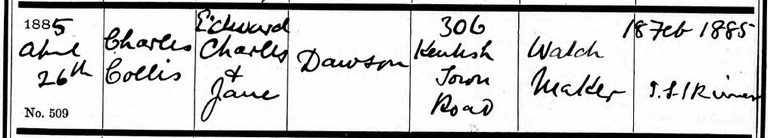 1885
April
26th
No. 509
Charles
Collis
Edward
Charles
+
Jane
Dawson
306
Kentish
Town
Road
Watch
Maker
18 Feb 1885